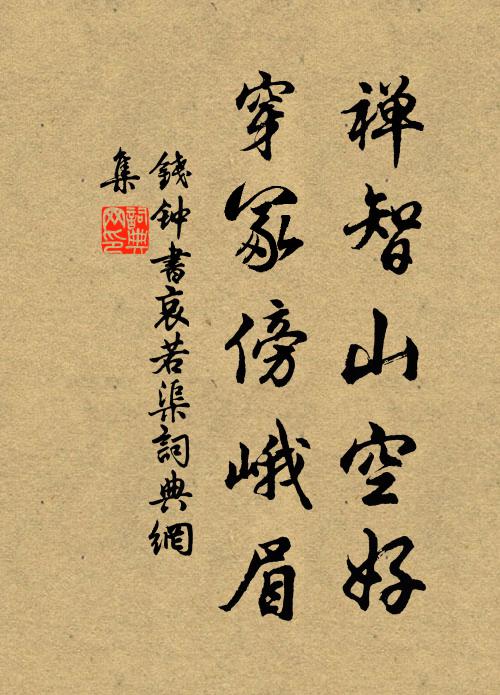 禅智山空好
穿冢傍峨眉
錢钟書哀若渠詞典網
集
詞典
网印